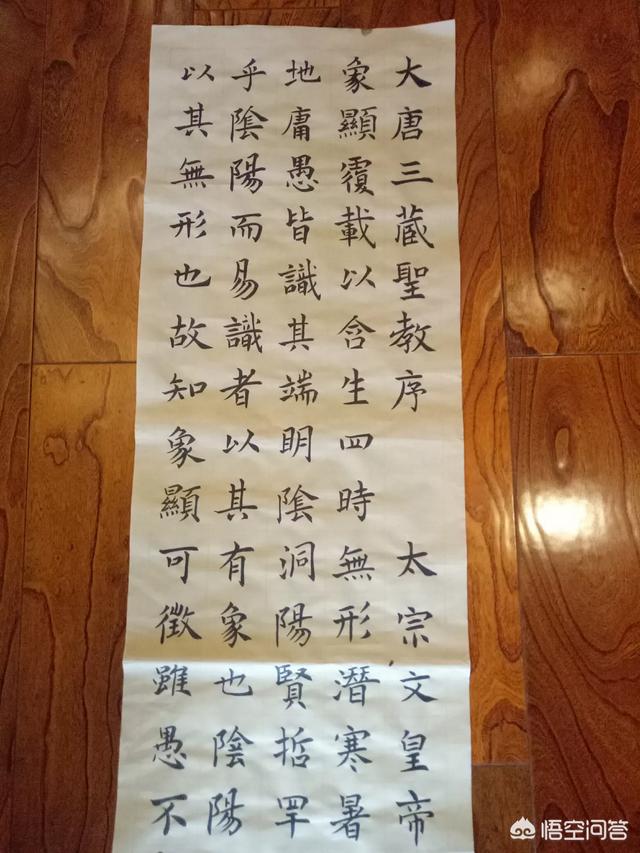 大唐三藏聖教序 太宗文皇帝
象顯覆載以含生四時無形潛寒暑
地庸愚皆識其端明陰洞陽賢哲罕
乎陰陽而易識者以其有象也陰陽
以其無形也故知象顯可徵雖愚不
悟空问答